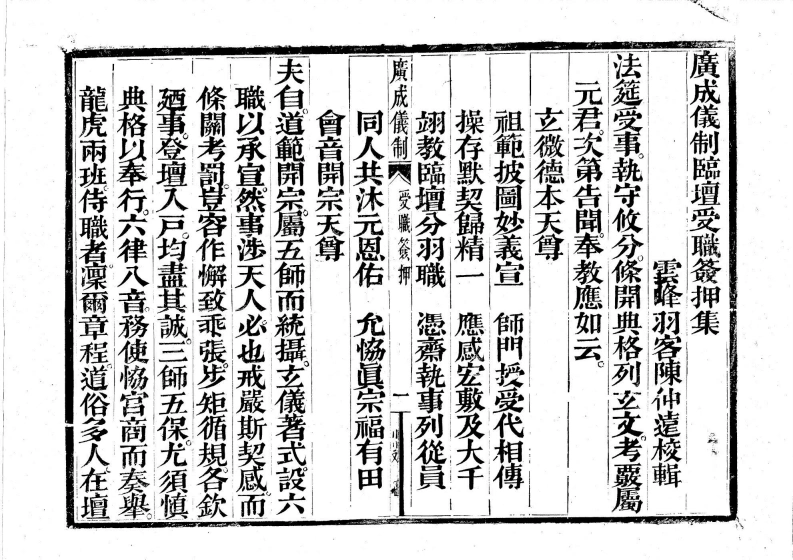 廣成儀制臨壇受職簽押集
雲峰羽客陳仲遠校輯
法筵受事。執守攸分。條開典格列玄文。考覈屬
元君。次第告聞。奉教應如云。
玄微德本天尊
祖範披圖妙義宣 師門授受代相傳
操存默契歸精一 應感宏敷及大千
翊教臨壇分羽職 憑齋執事列從員
同人共沐元恩佑 允協眞宗福有田
會音開宗天尊
廣成儀制 受職簽押 一
夫自。道範開宗。屬五師而統攝。玄儀著式。設六
職以承宣。然事涉天人。必也戒嚴斯契感。而
條關考罰。豈容作懈致乖張。步矩循規。各欽
廼事。登壇入戸。均盡其誠。三師五保。尤須慎
典格以奉行。六律八音。務使協宮商而奏舉。
龍虎兩班。侍職者凜爾章程。道俗多人。在壇